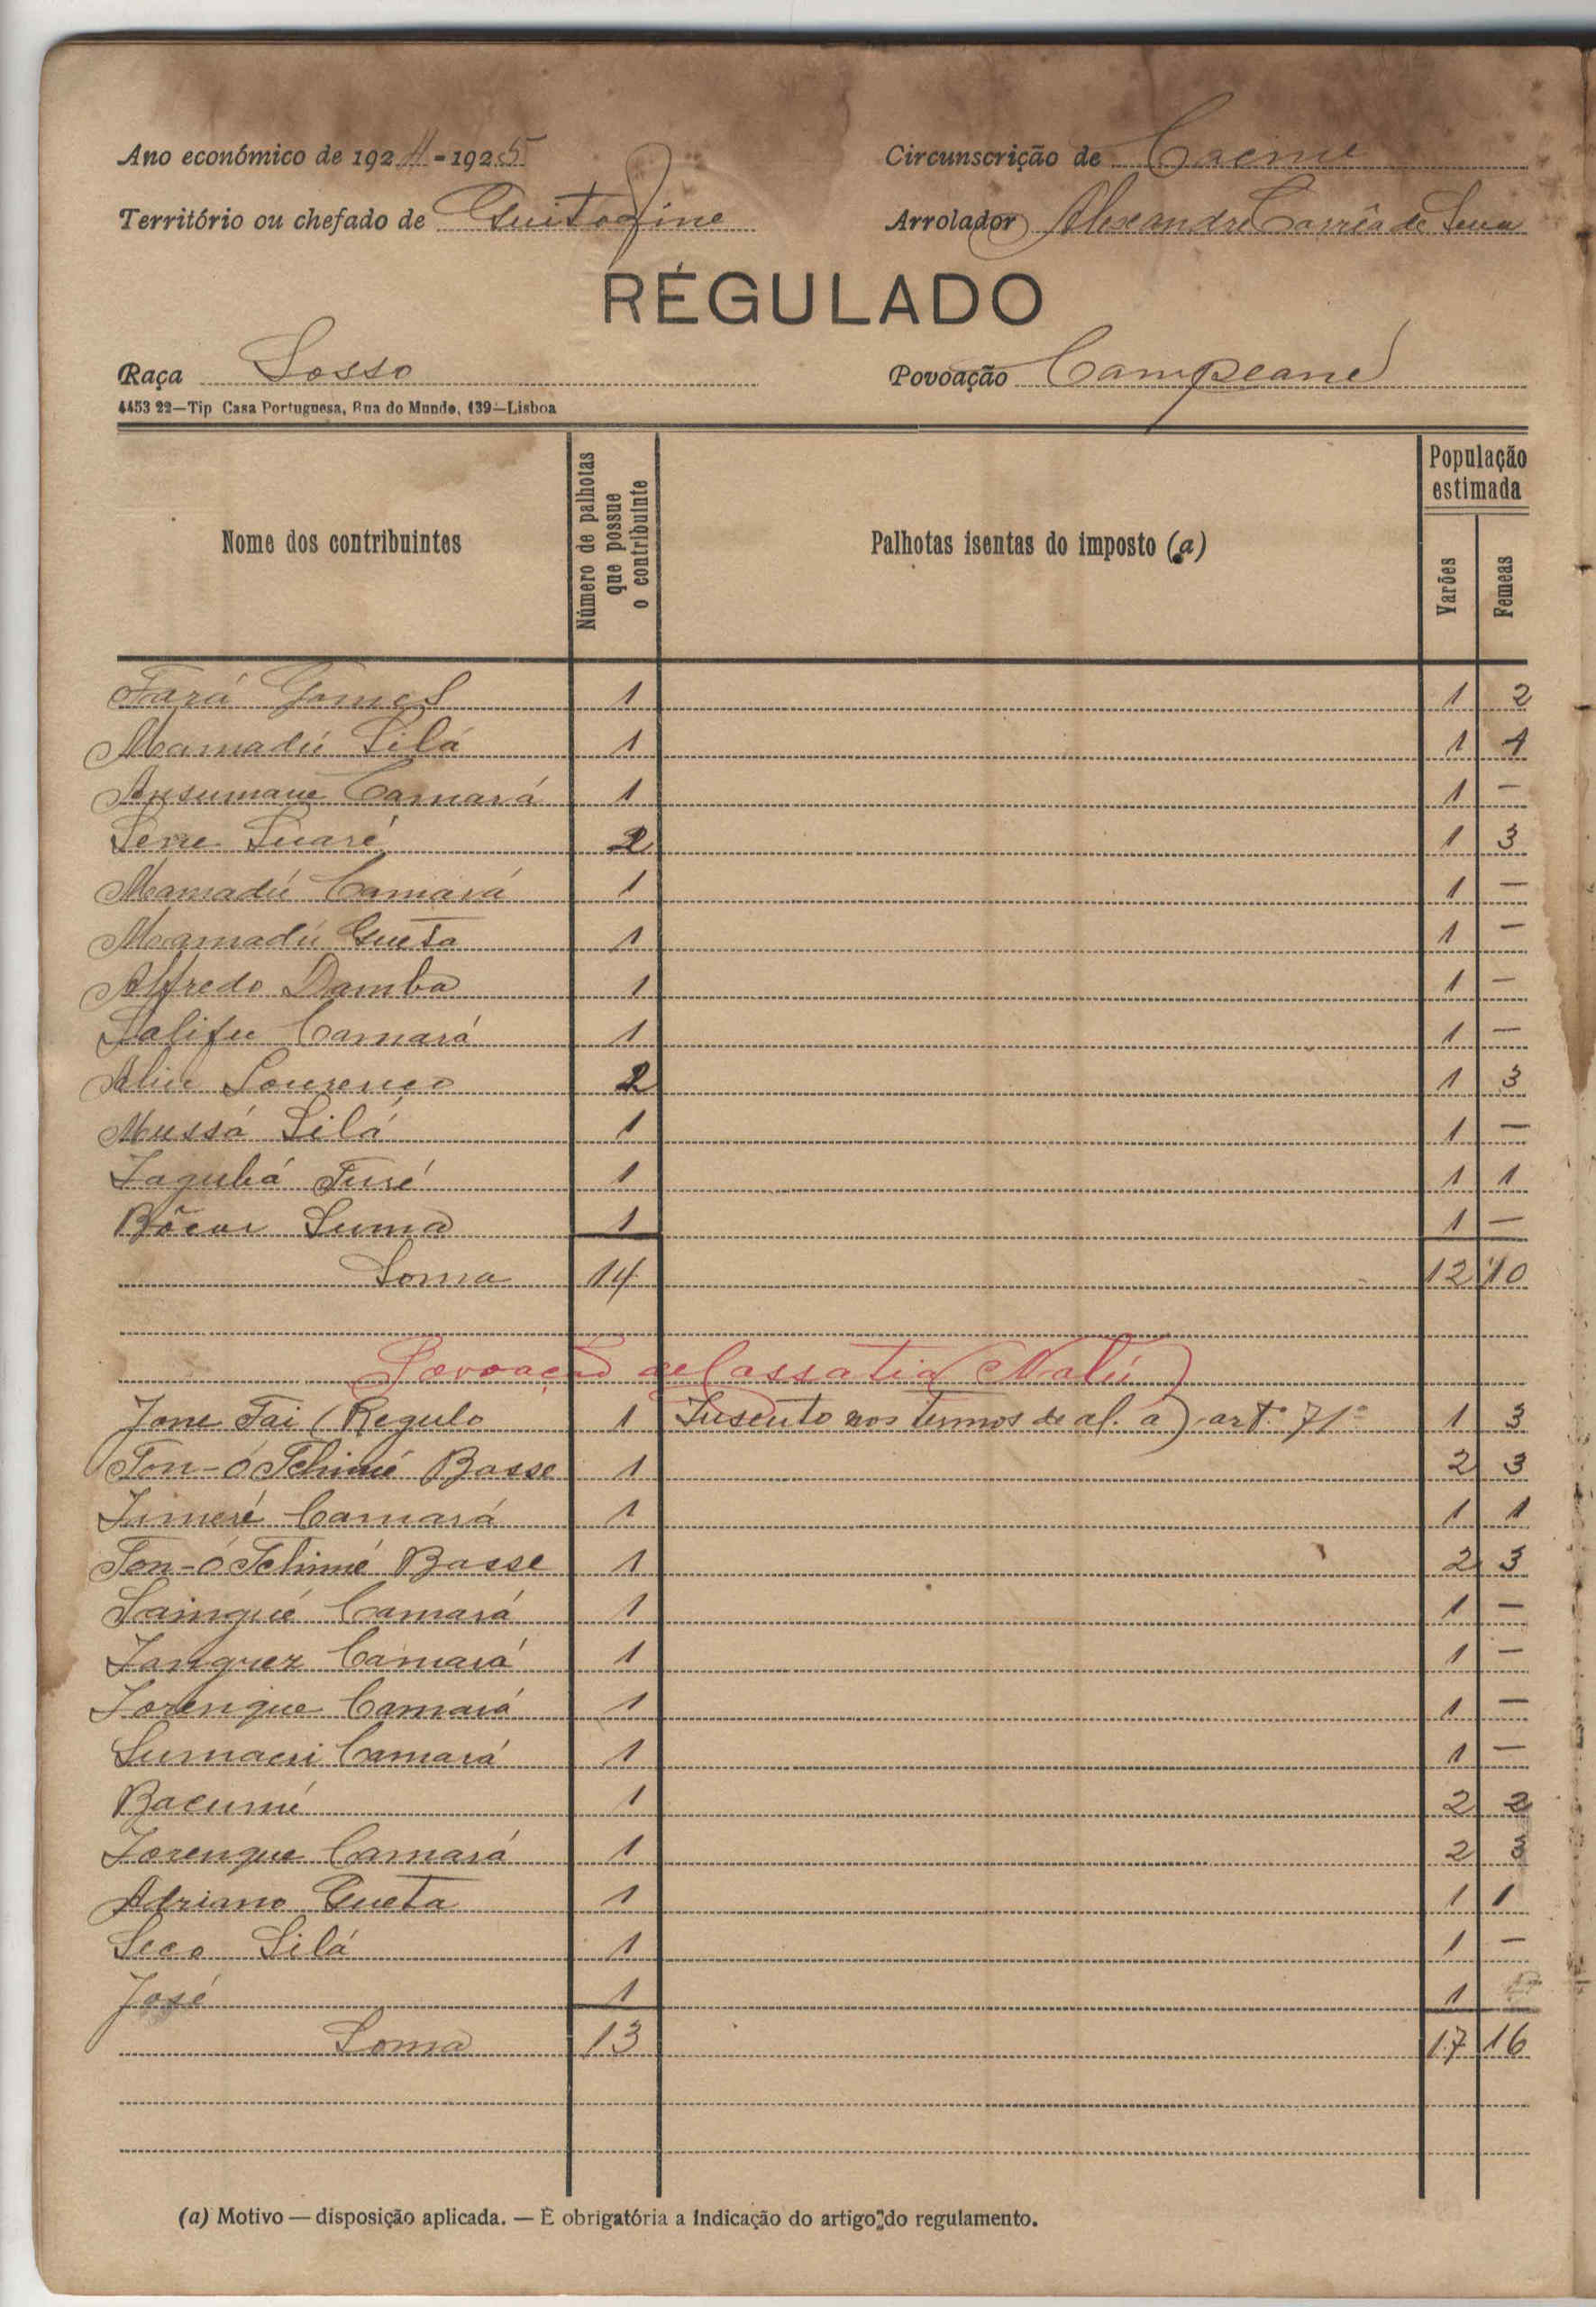 Ano económico de 1924-1925 Circunscrição de Cacine
Território ou chefado de Guitafine Arrolador Alexandre Corrêa de Sena
RÉGULADO
Raça Sosso Povoação Campeané
4453 22—Tip Casa Portuguesa, Rua do Mundo, 139—Lisboa
Nome dos contribuintes Número de palhotas que possue o contribuinte Palhotas isentas do imposto (a) População estimada Varões Femeas
Fará Gomes 1 1 2
Mamadú Silá 1 1 1
Ansumane Camará 1 1 —
Suaré 2 1 3
Mamadú Camará 1 1 —
Mamadú Gueta 1 1 —
Alfredo Damba 1 1 —
Salifu Camará 1 1 —
Lourenço 2 1 3
Mussá Silá 1 1 —
Iagubá Turé 1 1 1
Bócar Suma 1 1 —
Soma 14 12 10
Povoação de Cassatia (Nalú)
Jone Tai (Regulo 1 Insento nos termos de al. a) art.º 71º 1 3
Ton-ó Tchimé Basse 1 2 3
Camará 1 1 1
Ton-ó Tchimé Basse 1 2 3
Sainqué Camará 1 1 —
Camará 1 1 —
Iorenque Camará 1 1 —
Camará 1 1 —
Bacumé 1 2 2
Iorenque Camará 1 2 3
Adriano Gueta 1 1 1
Seco Silá 1 1 —
José 1 1
Soma 13 17 16
(a) Motivo — disposição aplicada. — É obrigatória a indicação do artigo do regulamento.